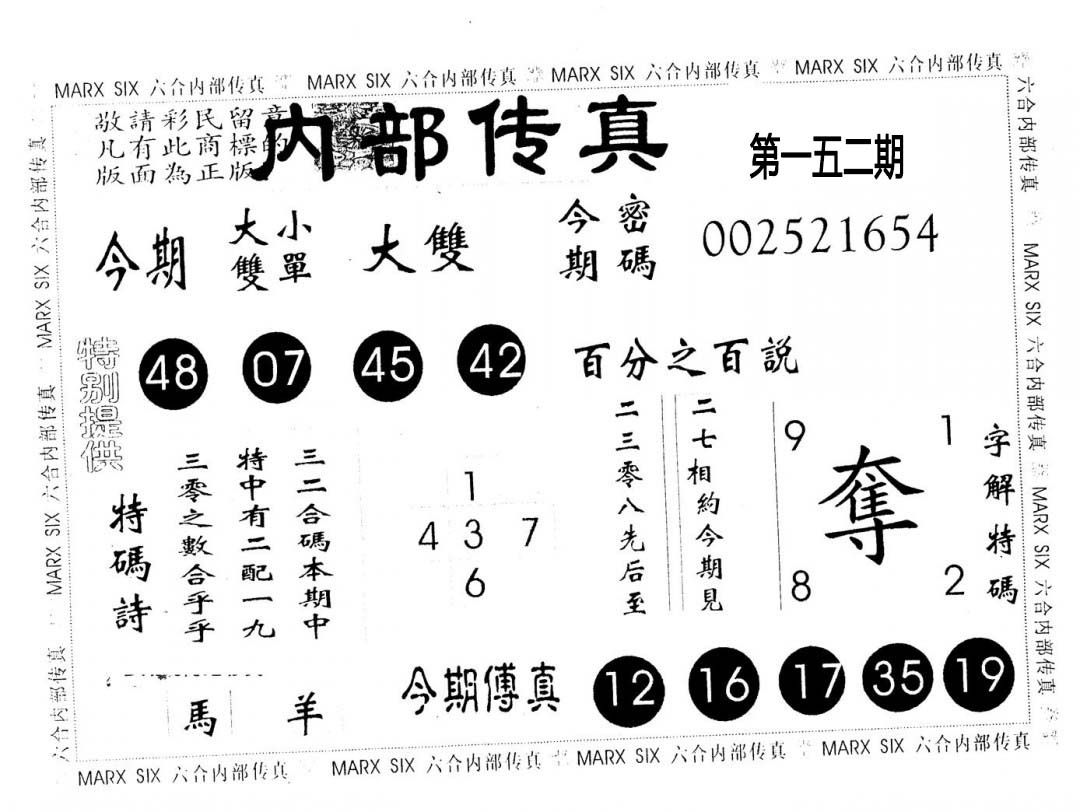 MARX SIX 六合内部传真 MARX SIX 六合内部传真 MARX SIX 六合内部传真 MARX SIX 六合内部传真
敬請彩民留意
凡有此商標的
版面為正版
内部传真
第一五二期
今期
大雙
小單
大雙
今期
密碼
002521654
特别提供
48 07 45 42
百分之百説
二七相約今期見
二三零八先后至
字解特碼
9 1
奪
8 2
三二合碼本期中
特中有二配一九
三零之數合乎乎
特碼詩
1
4 3 7
6
馬 羊
今期傳真
12 16 17 35 19
六合内部传真 MARX SIX 六合内部传真 MARX SIX 六合内部传真 MARX SIX 六合内部传真
六合内部传真 MARX SIX 六合内部传真 MARX SIX 六合内部传真 MARX SIX 六合内部传真
MARX SIX 六合内部传真 MARX SIX 六合内部传真 MARX SIX 六合内部传真 MARX SIX 六合内部传真